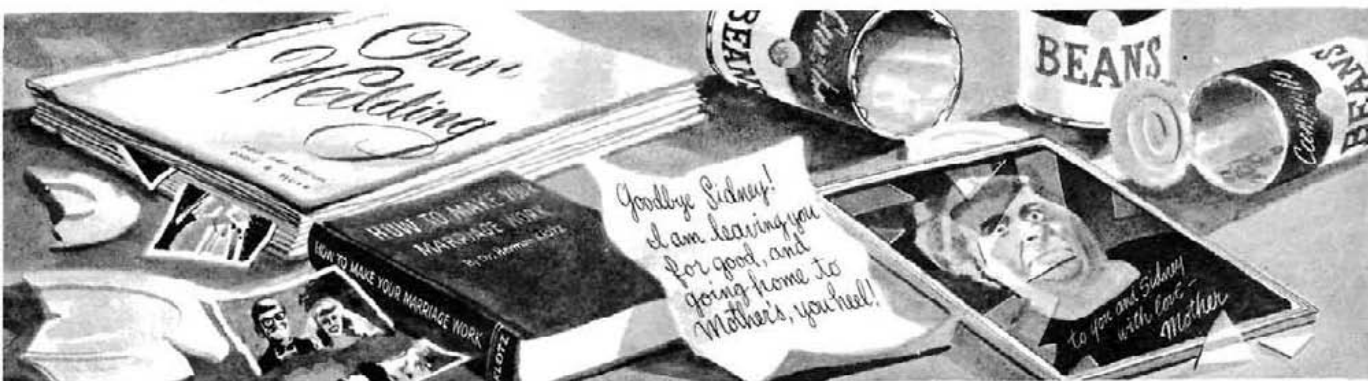 Our
Wedding
BEANS
BEANS
BEANS
HOW TO MAKE YOUR
MARRIAGE WORK
HOW TO MAKE YOUR MARRIAGE WORK
KLOTZ
Goodbye Sidney!
I am leaving you
for good, and
going home to
Mother's, you heel!
to you and Sidney
with love –
Mother